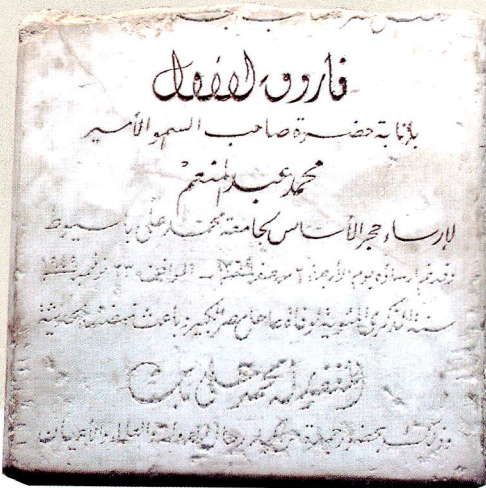 فاروق الأول
بإنابة حضرة صاحب السمو الأمير
محمد عبد المنعم
لإرساء حجر الأساس لجامعة محمد على بأسيوط
وقد تم إرساؤه يوم الأربعاء ٢ من صفر الموافق ٢٣ نوفمبر ١٩٤٩
سنة الذكرى المئوية لوفاة عاهل مصر الكبير وباعث نهضتها الحديثة
المغفور له محمد على باشا
وذلك بحضور رجال الدولة والعلماء والأعيان